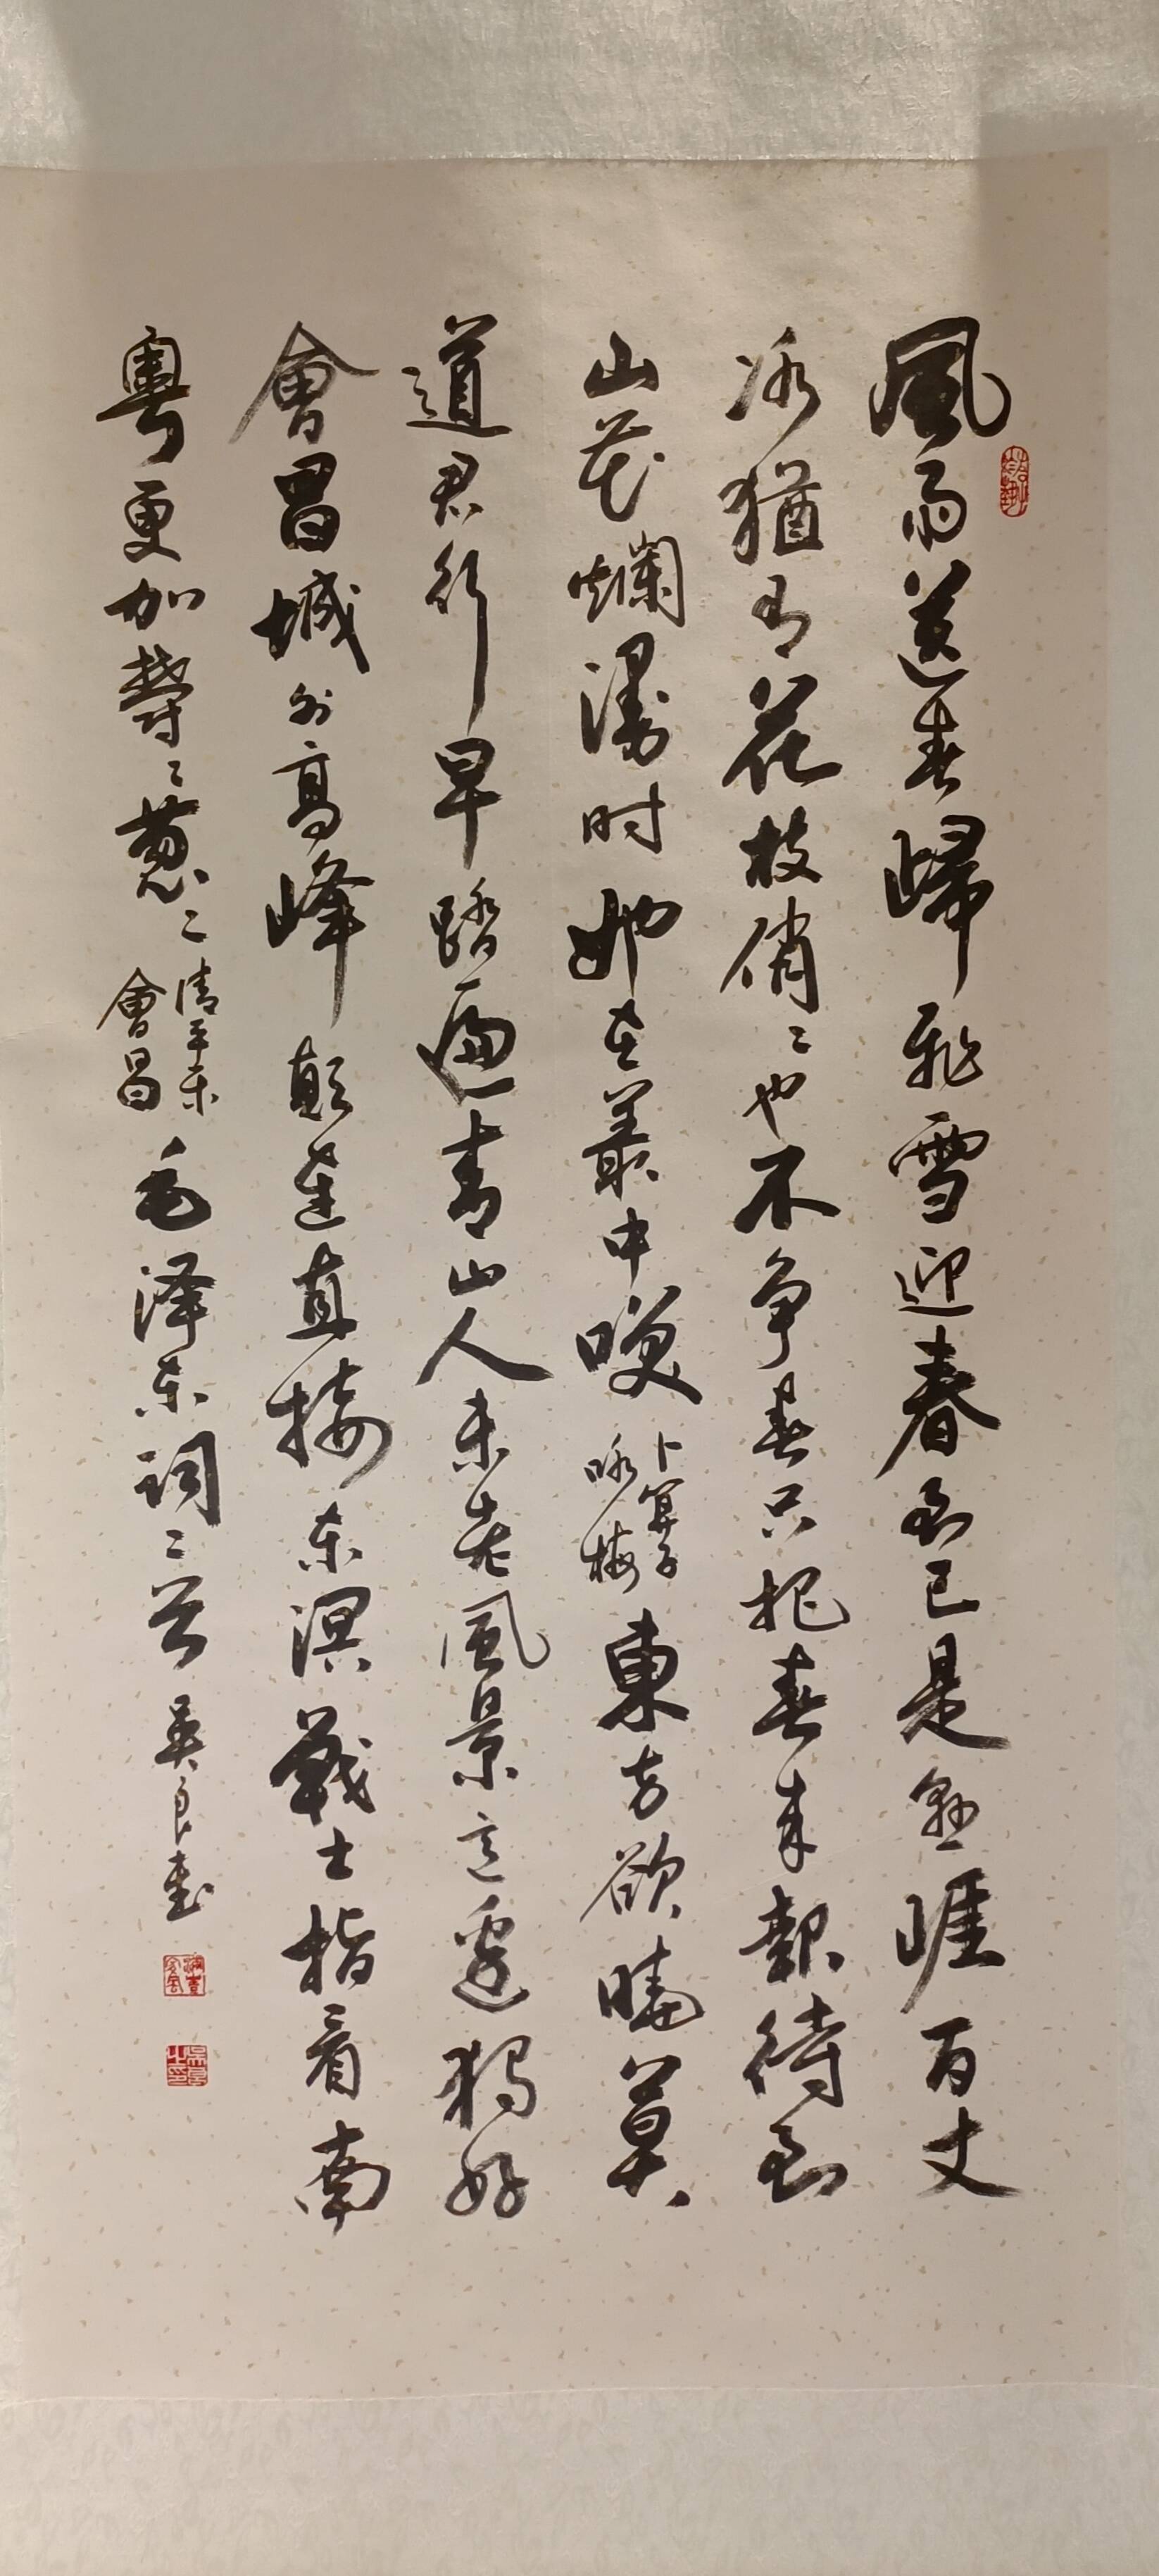 風雨送春歸飛雪迎春到已是懸崖百丈
冰猶有花枝俏〻也不争春只把春來報待到
山花爛漫时她在叢中唉
卜算子
咏梅
東方欲曉莫
道君行早踏遍青山人未老風景这邊獨好
會昌城外高峰顛連直接东溟戰士指看南
粵更加鬱〻葱〻
清平乐
會昌
毛泽东词二首
吴良书